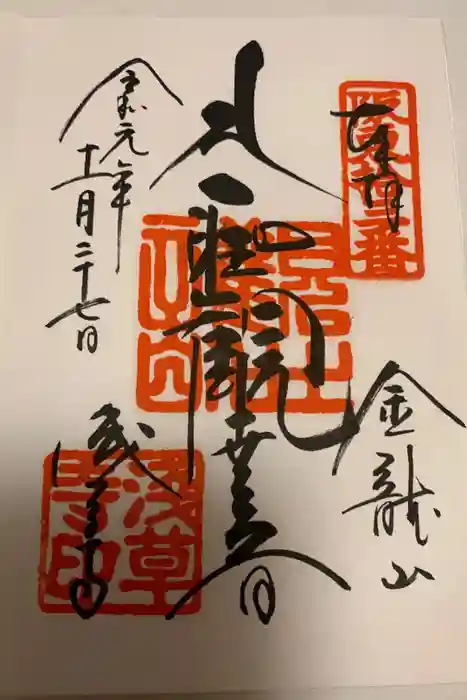 奉拝
坂東十三番
金龍山
聖観世音
令和元年
十一月二十七日
浅草寺
浅草
寺印